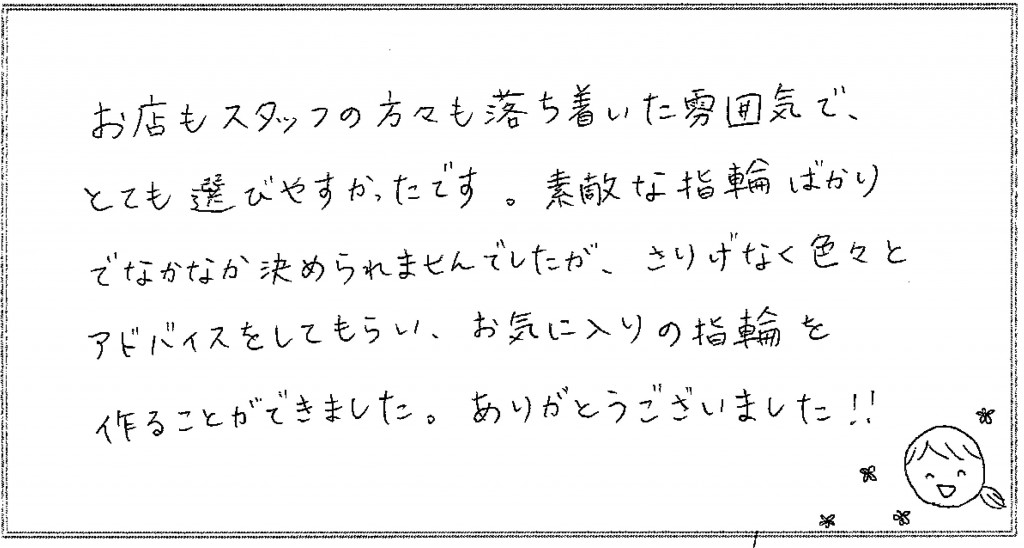 お店もスタッフの方々も落ち着いた雰囲気で、
とても選びやすかったです。素敵な指輪ばかり
でなかなか決められませんでしたが、さりげなく色々と
アドバイスをしてもらい、お気に入りの指輪を
作ることができました。ありがとうございました!!